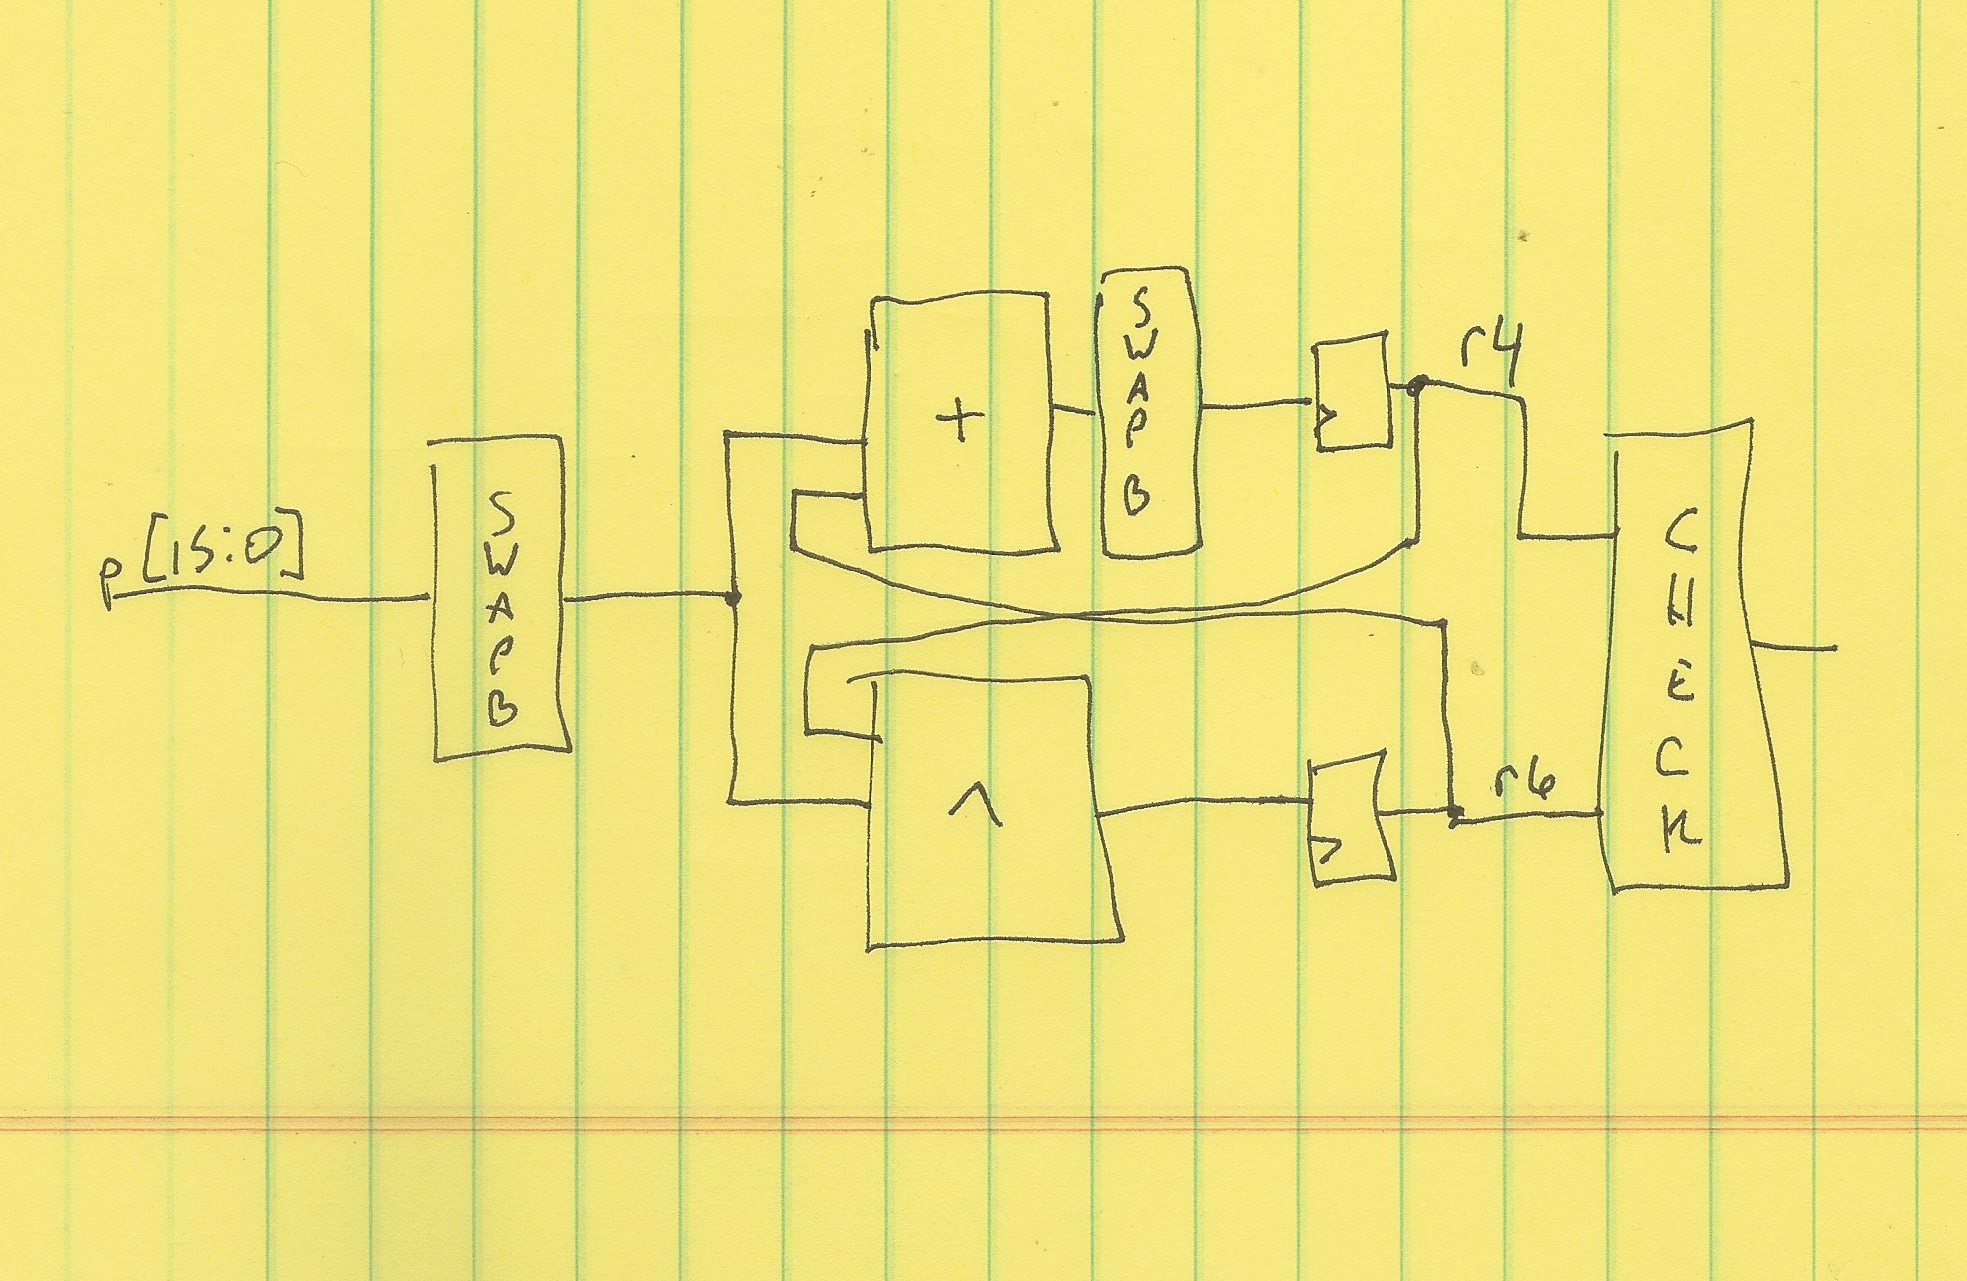 p[15:0]
SWAPB
+
SWAPB
r4
^
r6
CHECK